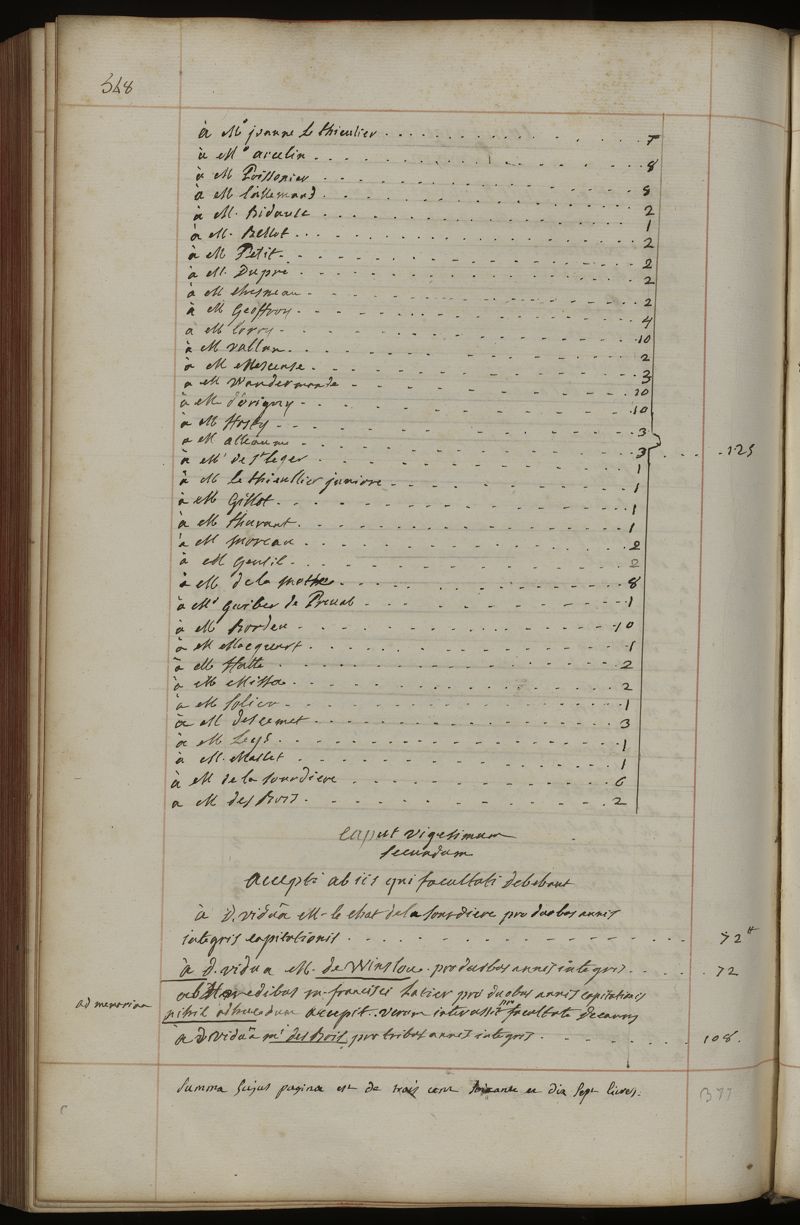 548
à Mr jeanne Le thieulier . . . . . . . . 7
à Mr azelin . . . . . . . . 8
à M Poissonier . . . . . . . . 8
à M L'allemand . . . . . . . . 2
à M. Bidault . . . . . . . . 1
à M. Bellot . . . . . . . . 2
à M Petit . . . . . . . . 2
à M. Dupré . . . . . . . . 2
à M chesneau . . . . . . . . 2
à M Geoffroy . . . . . . . . 4
à M lorry . . . . . . . . 10
à M vallun . . . . . . . . 2
à M . . . . . . . . 3
à M Wandermonde . . . . . . . . 10
à M d'origny . . . . . . . . 10
à M Hosty . . . . . . . . 3
à M alleaume . . . . . . . . 3 . . . . 125
à M de St leger . . . . . . . . 1
à M le thieullier juniore . . . . . . . . 1
à M Gillot . . . . . . . . 1
à M thurant . . . . . . . . 1
à M moreau . . . . . . . . 2
à M Gentil . . . . . . . . 2
à M de la mothe . . . . . . . . 8
à Mr Guilber de Preval . . . . . . . . 1
à M Bordeu . . . . . . . . 10
à M Macquart . . . . . . . . 1
à M Hatte . . . . . . . . 2
à M Missa . . . . . . . . 2
à M solier . . . . . . . . 1
à M descemet . . . . . . . . 3
à M Leys . . . . . . . . 1
à M. Mallet . . . . . . . . 1
à M de la sourdiere . . . . . . . . 6
à M des Bois . . . . . . . . 2
Caput vigesimum
secundum
accepti ab iis qui facultati debebant
à D. viduâ M. le chat de la sourdiere pro duobus annis
integris capitationis . . . . . . . . 72 ₶
à D. vidua M. de Winslou pro duobus annis integris . . . . 72
ad memoriam
ab Haeredibus m. francisci hatier pro duobus annis capitationis
nihil adhucdum accepit. verum pro facultate Decanus
à D viduâ mi des Bois pro tribus annis integris . . . . . . . . 108.
Summa hujus paginæ est de trois cent soixante et dix sept livres. 377